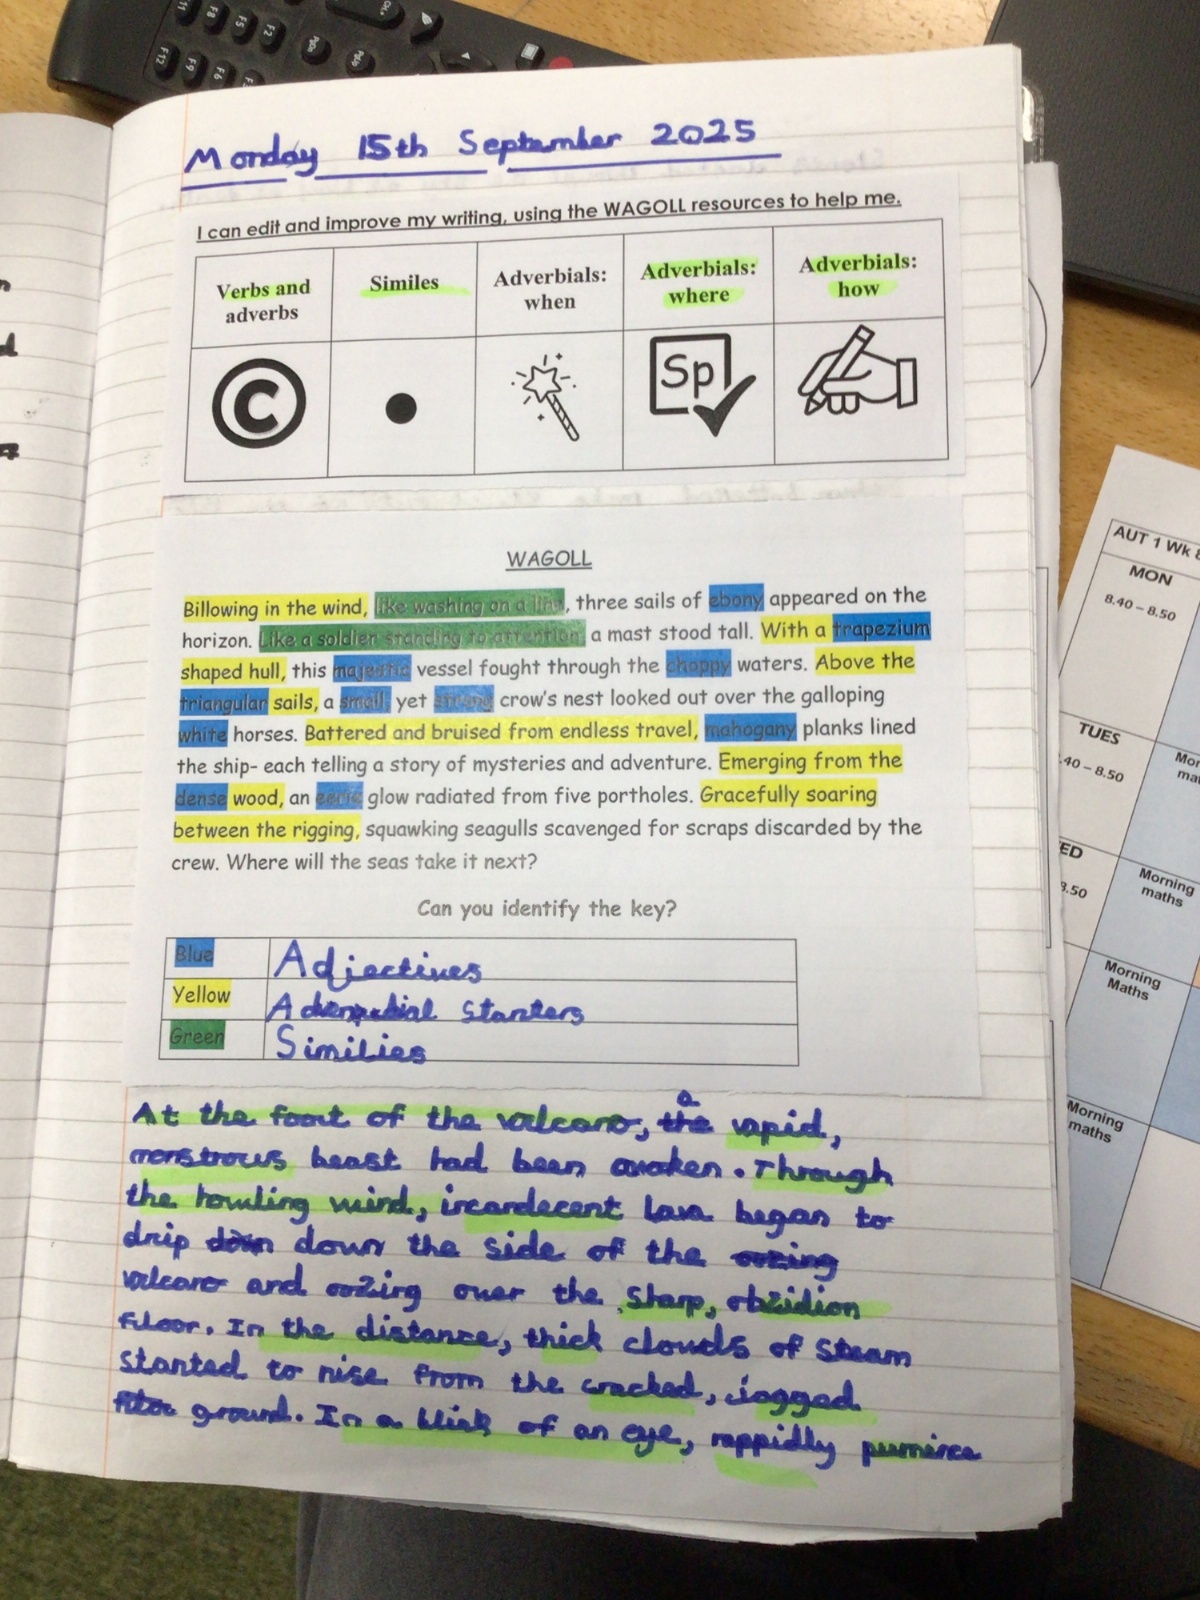 Monday 15th September 2025
I can edit and improve my writing, using the WAGOLL resources to help me.
Verbs and adverbs
Similes
Adverbials: when
Adverbials: where
Adverbials: how
C
Sp
WAGOLL
Billowing in the wind, like washing on a line, three sails of ebony appeared on the
horizon. Like a soldier standing to attention a mast stood tall. With a trapezium
shaped hull, this majestic vessel fought through the choppy waters. Above the
triangular sails, a small yet strong crow's nest looked out over the galloping
white horses. Battered and bruised from endless travel, mahogany planks lined
the ship- each telling a story of mysteries and adventure. Emerging from the
dense wood, an eerie glow radiated from five portholes. Gracefully soaring
between the rigging, squawking seagulls scavenged for scraps discarded by the
crew. Where will the seas take it next?
Can you identify the key?
Blue Adjectives
Yellow Starters
Green Similies
a
At the foot of the valcano, the vapid,
monstrous beast had been awoken. Through
the howling wind, incandecent lava began to
drip down the side of the oozing
valcano and oozing over the sharp, obzidion
floor. In the distance, thick clouds of steam
started to rise from the cracked, jagged
ground. In a blink of an eye, rappidly pumince
F11
F8
F5
F2
F12
F9
F6
F3
PgUp
PgDn
CH+
AUT 1 Wk
MON
8.40 – 8.50
TUES
.40 – 8.50
ED
8.50
Morning
maths
Morning
Maths
Morning
maths